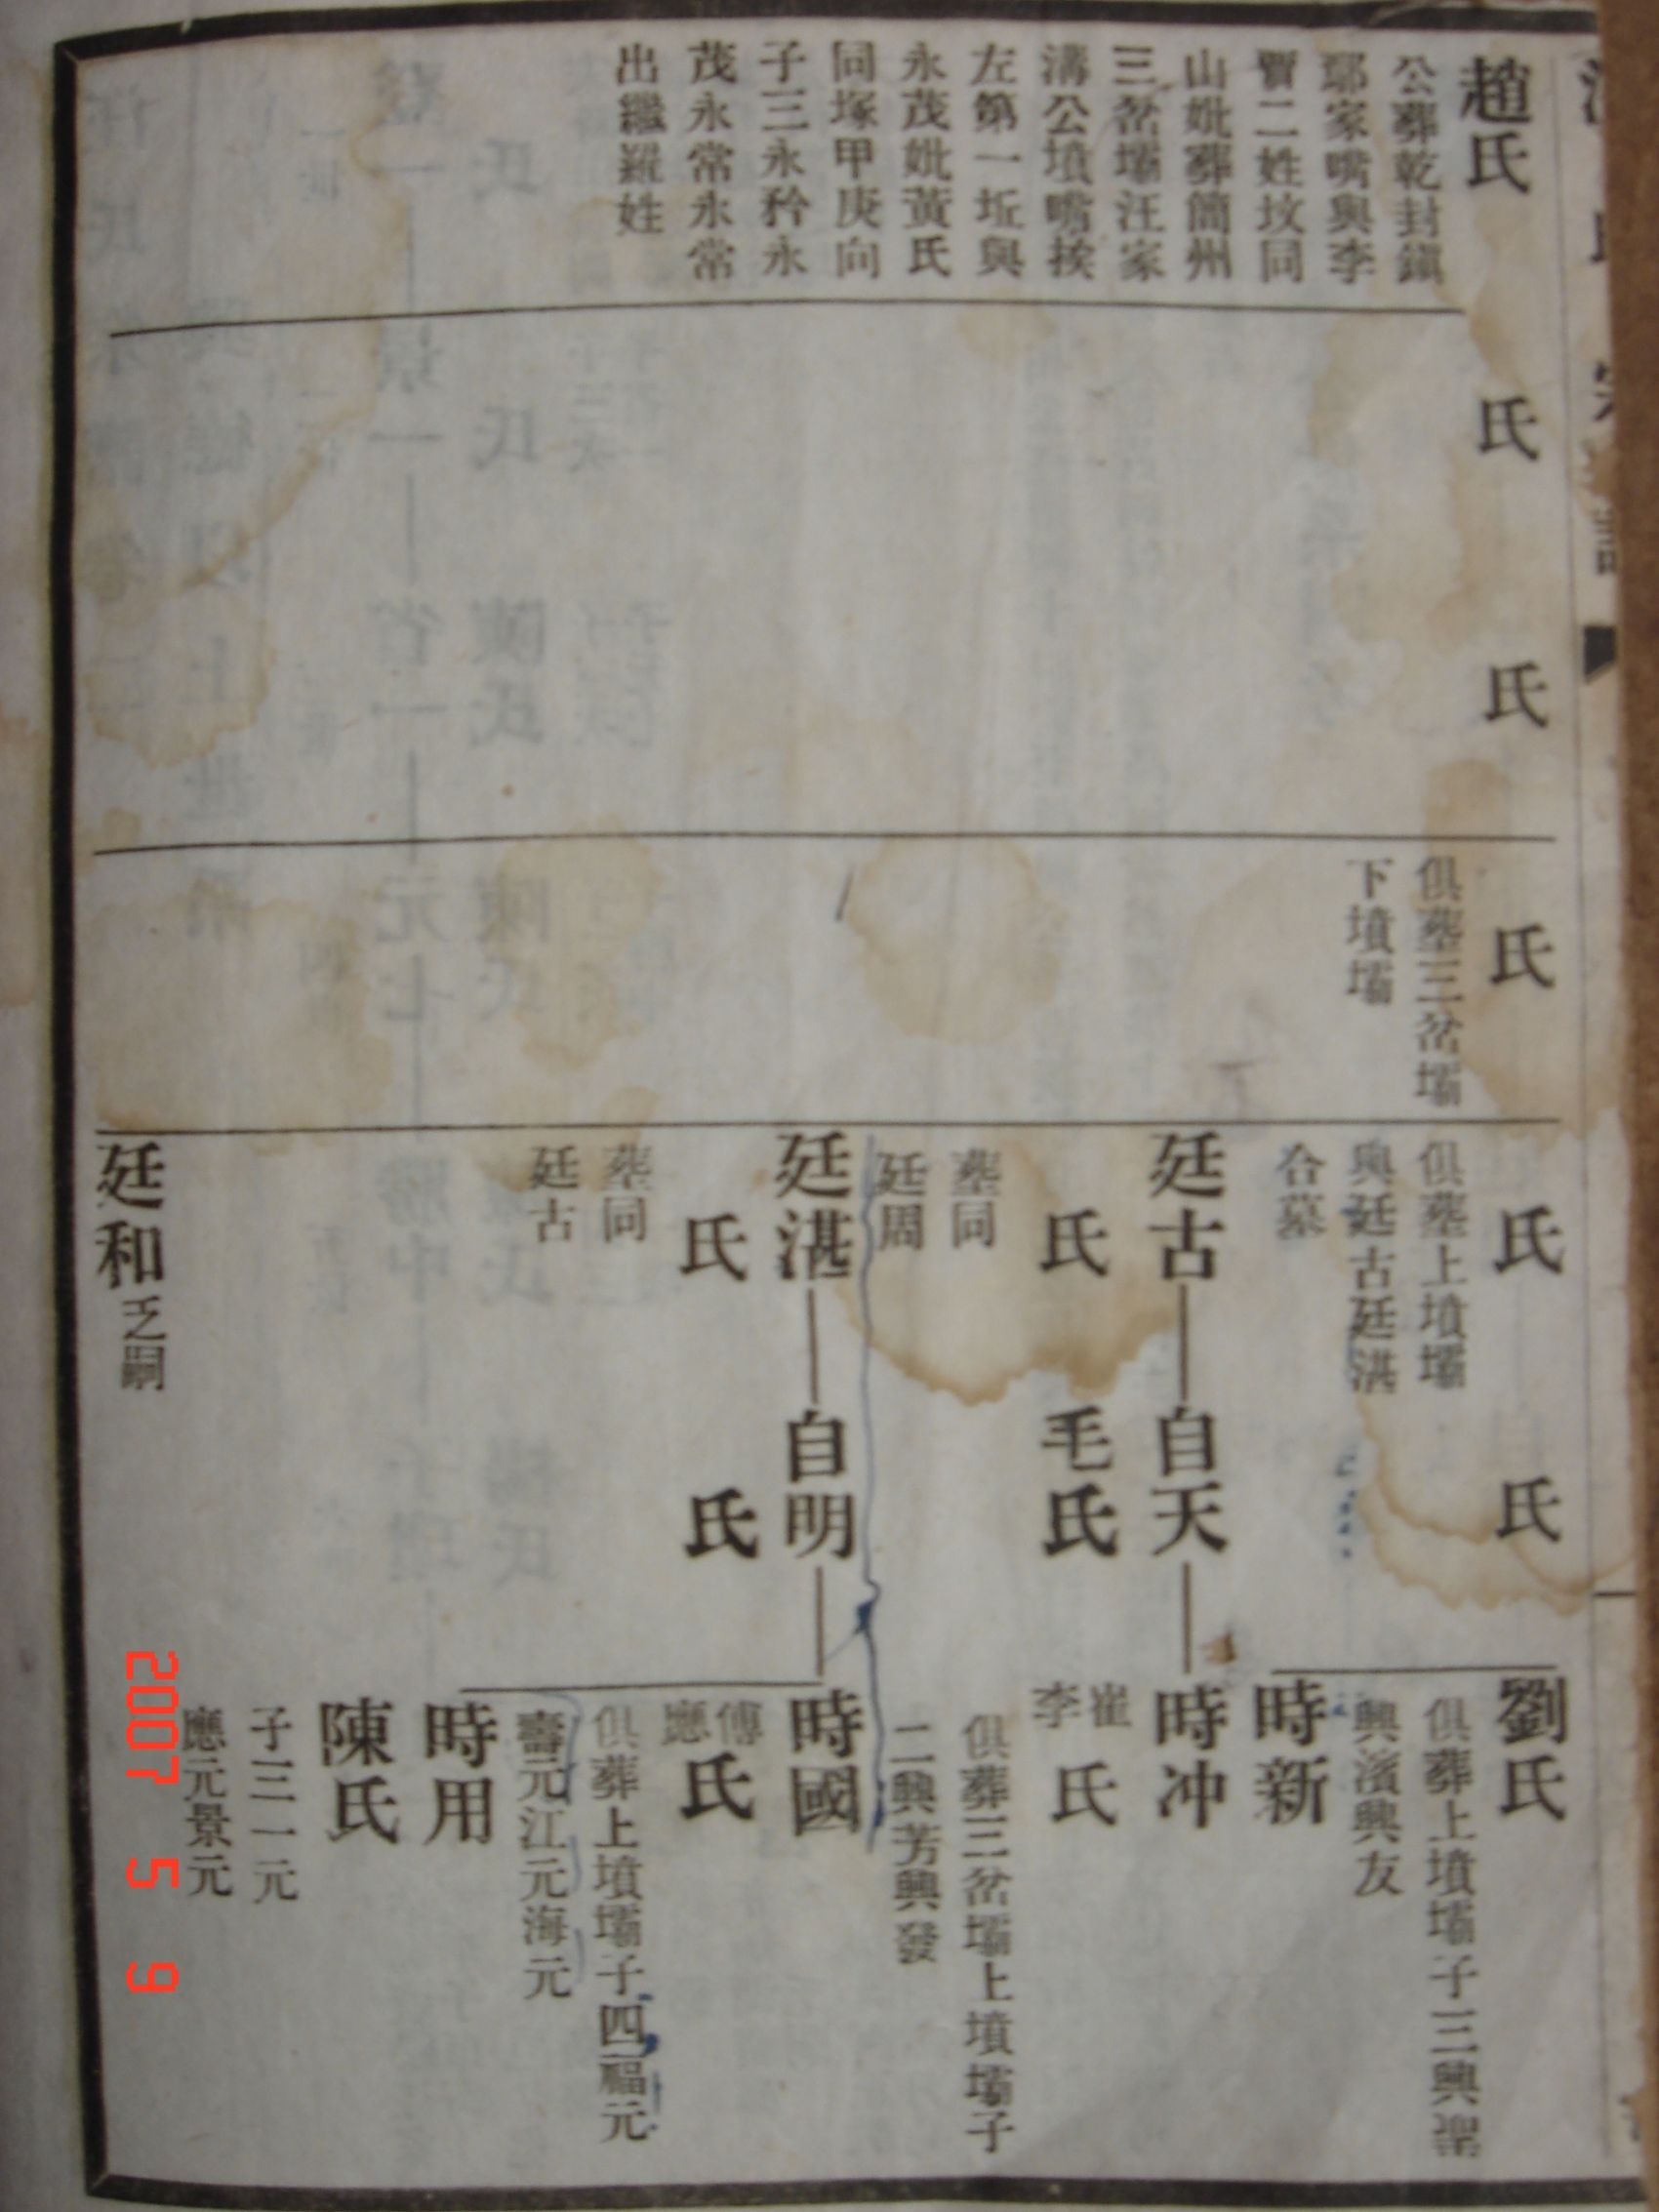 趙氏
公葬乾封鎮
鄢家嘴與李
賈二姓坟同
山妣葬簡州
三岔壩汪家
溝公墳嘴挨
左第一坵與
永茂妣黃氏
同塚甲庚向
子三永矜永
茂永常永常
出繼羅姓
氏
氏
氏
俱塟三岔壩
下墳壩
氏
俱塟上墳壩
與廷古廷湛
合墓
氏
劉氏
俱葬上墳壩子三興聖
興濱興友
時新
廷古
自天
時冲
氏
塟同
廷周
毛氏
崔李氏
俱葬三岔壩上墳壩子
二興芳興發
廷湛
自明
時國
氏
塟同
廷古
氏
傅應氏
俱葬上墳壩子四福元
壽元江元海元
時用
陳氏
子三一元
應元景元
廷和乏嗣
2007 5 9